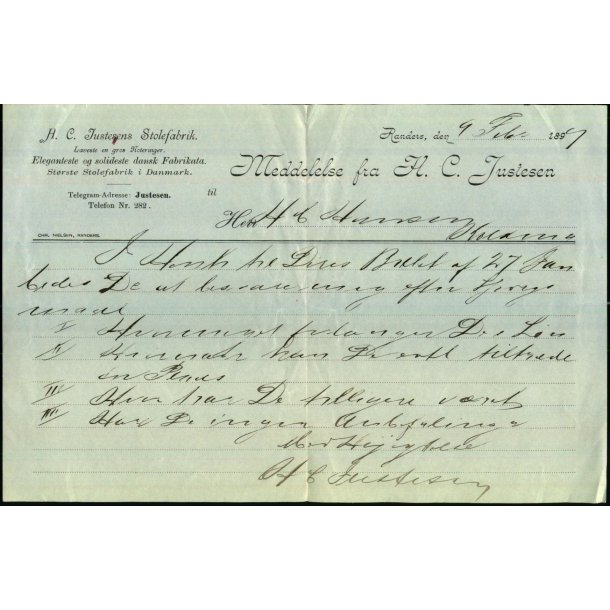 H. C. Justesens Stolefabrik.
Laveste en gros Noteringer.
Eleganteste og solideste dansk Fabrikata.
Største Stolefabrik i Danmark.
Telegram-Adresse: Justesen.
Telefon Nr. 282.
CHR. NIELSEN, RANDERS.
Randers, den 9 Feb 1897
Meddelelse fra H. C. Justesen
til
Herr H C Hansen
Kolding
I Henh til Deres Billet af 27 Jan
bedes De at besvare mig efter
maade
I Hvormeget forlanger De i Løn
II Hvornaar kan De evt tiltræde
en Plads
III Hvor har De tidligere været
IIII Har De ingen Anbefalinger
Med Højagtelse
H C Justesen